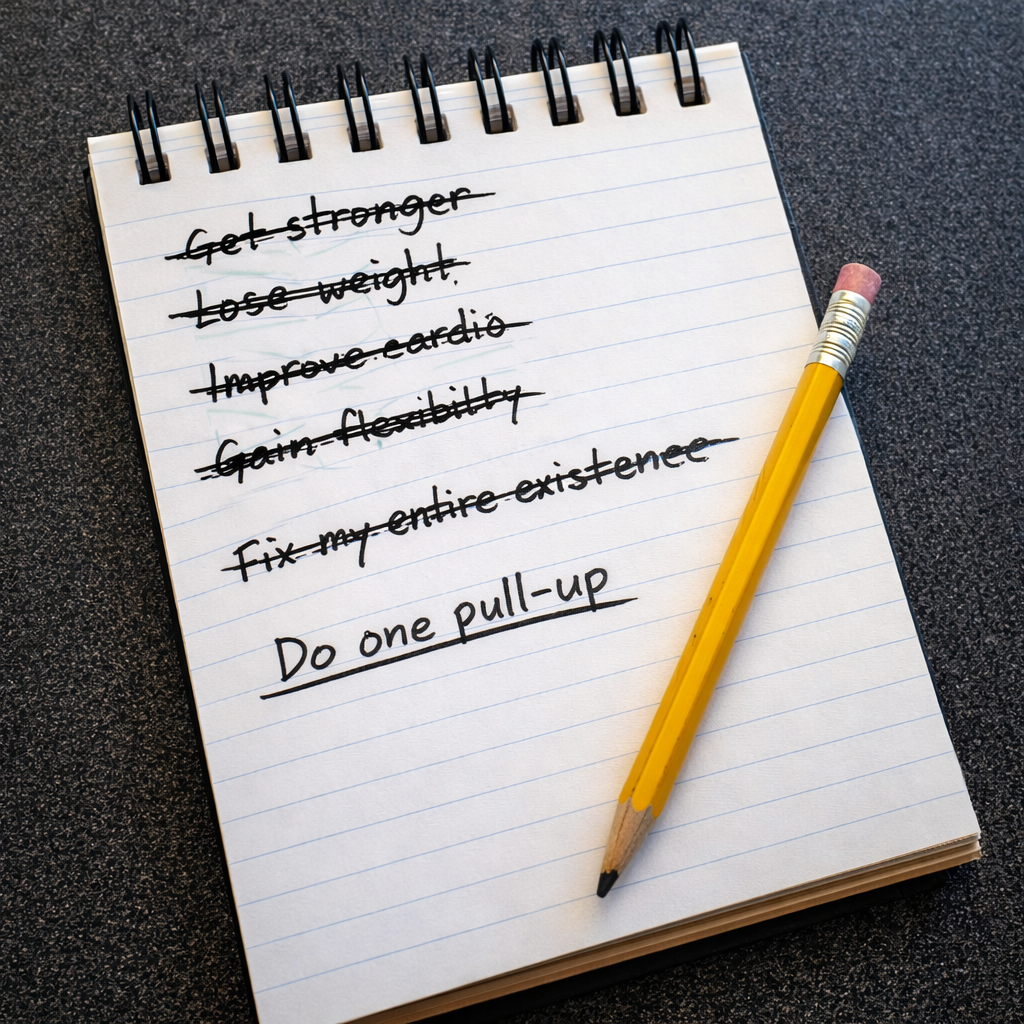 Get stronger
Lose weight.
Improve cardio
Gain flexibilty
Fix my entire existence
Do one pull-up